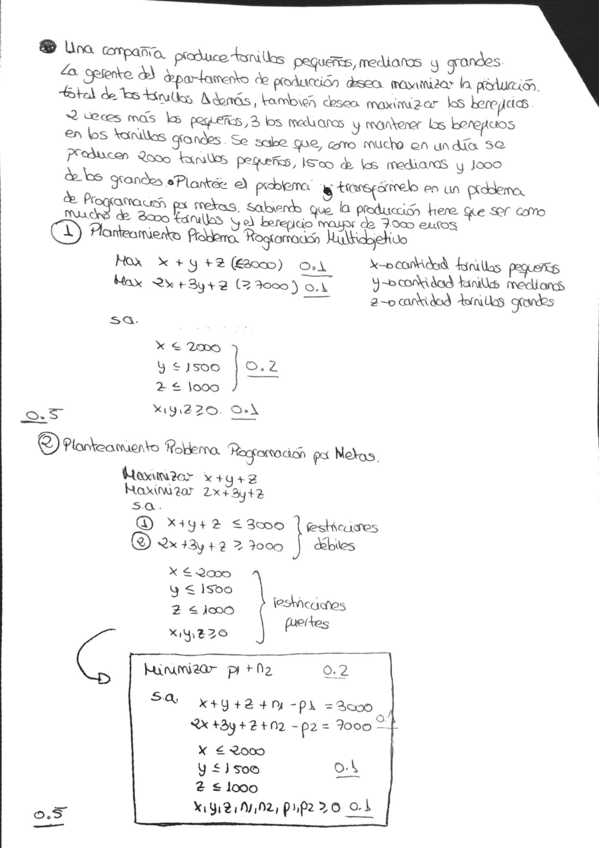 Una compañía produce tornillos pequeños, medianos y grandes.
La gerente del departamento de producción desea maximizar la producción.
total de los tornillos Además, también desea maximizar los beneficios.
2 veces más los pequeños, 3 los medianos y mantener los beneficios
en los tornillos grandes. Se sabe que, como mucho en un día se
producen 2000 tornillos pequeños, 1500 de los medianos y 1000
de los grandes. Plantée el problema y transfórmelo en un problema
de Programación por metas, sabiendo que la producción tiene que ser como
mucho de 3000 tornillos y el beneficio mayor de 7000 euros.
① Planteamiento Problema Programación Multiobjetivo
Max x + y + z (≤3000) 0.1 x→cantidad tornillos pequeños
Max 2x + 3y + z (≥7000) 0.1 y→cantidad tornillos medianos
z→cantidad tornillos grandes
s.a.
x ≤ 2000
y ≤ 1500 0.2
z ≤ 1000
x,y,z ≥ 0. 0.1
0.5
② Planteamiento Problema Programación por Metas.
Maximizar x+y+z
Maximizar 2x+3y+z
s.a.
① x+y+z ≤ 3000 restricciones
② 2x+3y+z ≥ 7000 débiles
x ≤ 2000
y ≤ 1500
z ≤ 1000 restricciones
x,y,z ≥ 0 fuertes
Minimizar p1 + n2 0.2
s.a. x+y+z+n1-p1 = 3000
2x+3y+z+n2-p2 = 7000 0.1
x ≤ 2000
y ≤ 1500 0.1
z ≤ 1000
x,y,z,n1,n2,p1,p2 ≥ 0 0.1
0.5